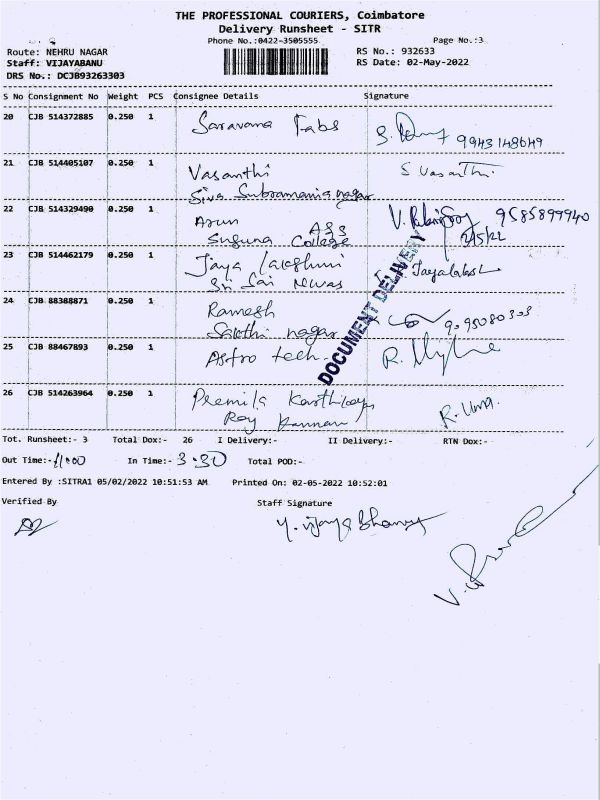 THE PROFESSIONAL COURIERS, Coimbatore
Delivery Runsheet - SITR
Phone No.:0422-3505555 Page No.:3
Route: NEHRU NAGAR RS No.: 932633
Staff: VIJAYABANU RS Date: 02-May-2022
DRS No.: DCJB93263303
S No Consignment No Weight PCS Consignee Details Signature
20 CJB 514372885 0.250 1 Saravana Fabs 9943148649
21 CJB 514405107 0.250 1 Vasanthi S Vasanthi
Siva Subramania nagar
22 CJB 514329490 0.250 1 Arun 9585899940
Suguna College 2/5/22
23 CJB 514462179 0.250 1 Jaya lakshmi Jayalakshmi
Sri Sai Niwas
DOCUMENT DELIVERY
24 CJB 88388871 0.250 1 Ramesh
Sakthi nagar
25 CJB 88467893 0.250 1 Astro tech.
26 CJB 514263964 0.250 1 Premila R. Uma.
Kannan
Tot. Runsheet:- 3 Total Dox:- 26 I Delivery:- II Delivery:- RTN Dox:-
Out Time:- 11:00 In Time:- 3.30 Total POD:-
Entered By :SITRA1 05/02/2022 10:51:53 AM Printed On: 02-05-2022 10:52:01
Verified By Staff Signature